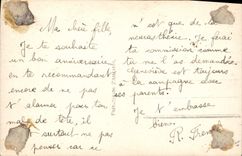 Ma chère fille,
Je te souhaite
un bon anniversaire
en te recommandant
encore de ne pas
t'alarmer pour ton
mal de tête, il
surtout ne pas
penser car ici
n'est que de la
neurasthénie. Je ferai
ta commission comme
tu me l'as demandée
Geneviève est toujours
à la campagne avec
ses parents.
Je t'embrasse